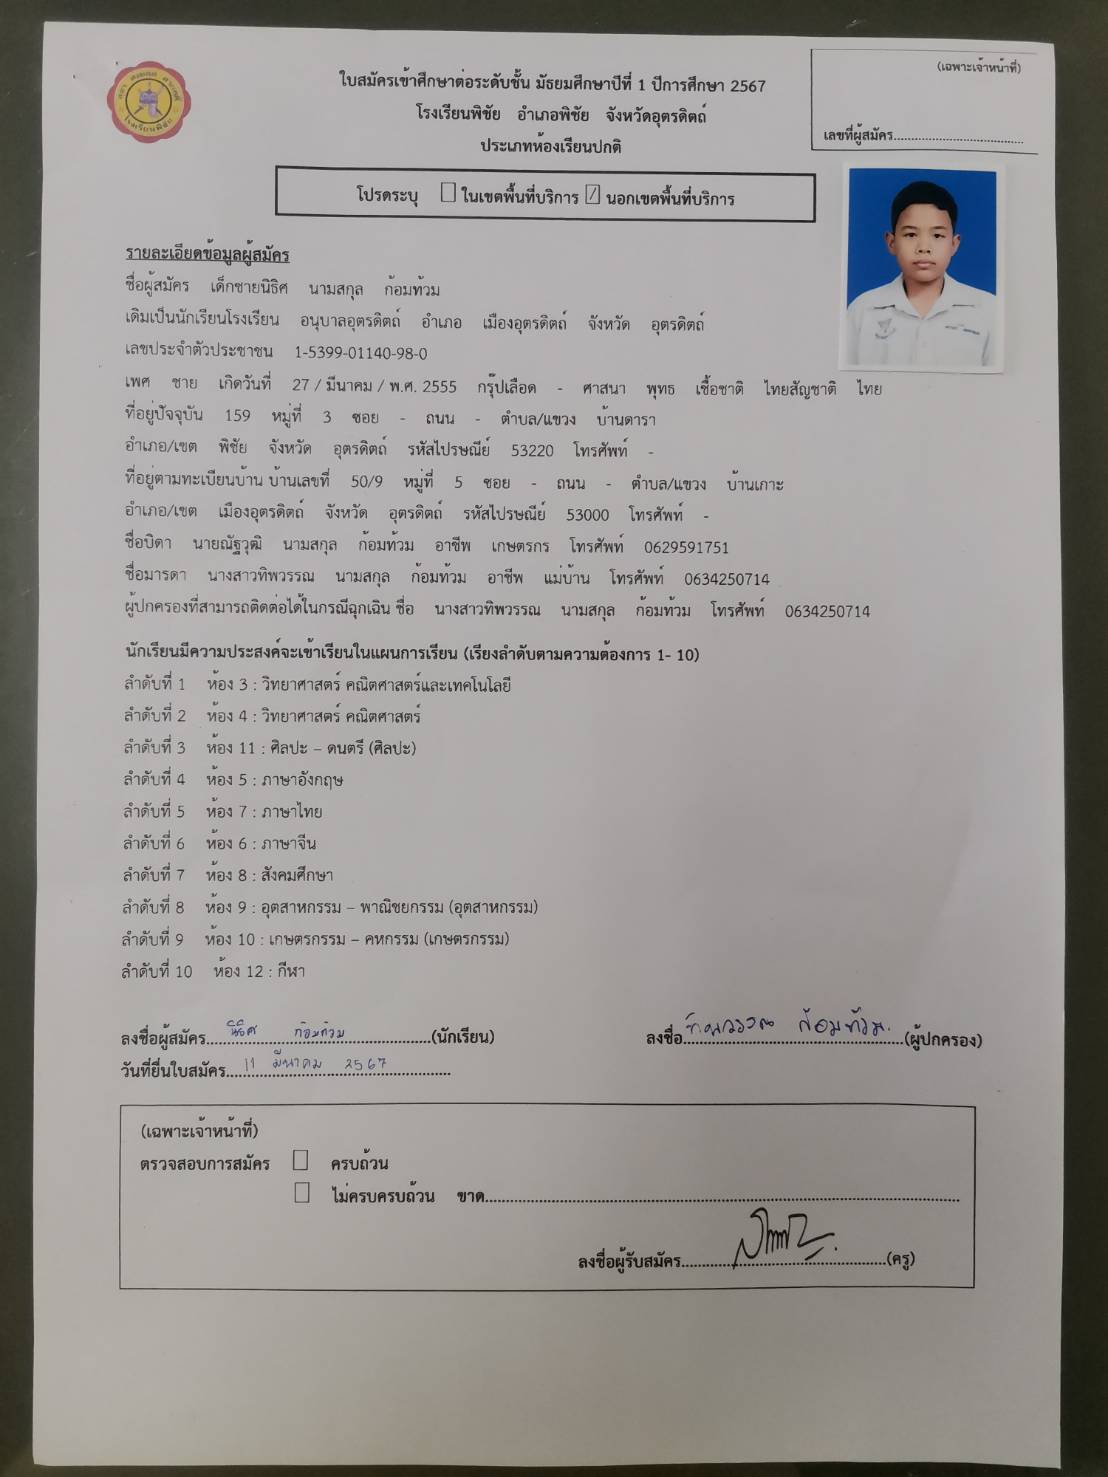 ใบสมัครเข้าศึกษาต่อระดับชั้น มัธยมศึกษาปีที่ 1 ปีการศึกษา 2567
โรงเรียนพิชัย อำเภอพิชัย จังหวัดอุตรดิตถ์
ประเภทห้องเรียนปกติ
(เฉพาะเจ้าหน้าที่)
เลขที่ผู้สมัคร
โรงเรียนพิชัย
โปรดระบุ ในเขตพื้นที่บริการ / นอกเขตพื้นที่บริการ
รายละเอียดข้อมูลผู้สมัคร
ชื่อผู้สมัคร เด็กชายนิธิศ นามสกุล ก้อมท้วม
เดิมเป็นนักเรียนโรงเรียน อนุบาลอุตรดิตถ์ อำเภอ เมืองอุตรดิตถ์ จังหวัด อุตรดิตถ์
เลขประจำตัวประชาชน 1-5399-01140-98-0
เพศ ชาย เกิดวันที่ 27 / มีนาคม / พ.ศ. 2555 กรุ๊ปเลือด - ศาสนา พุทธ เชื้อชาติ ไทยสัญชาติ ไทย
ที่อยู่ปัจจุบัน 159 หมู่ที่ 3 ซอย - ถนน - ตำบล/แขวง บ้านดารา
อำเภอ/เขต พิชัย จังหวัด อุตรดิตถ์ รหัสไปรษณีย์ 53220 โทรศัพท์ -
ที่อยู่ตามทะเบียนบ้าน บ้านเลขที่ 50/9 หมู่ที่ 5 ซอย - ถนน - ตำบล/แขวง บ้านเกาะ
อำเภอ/เขต เมืองอุตรดิตถ์ จังหวัด อุตรดิตถ์ รหัสไปรษณีย์ 53000 โทรศัพท์ -
ชื่อบิดา นายณัฐวุฒิ นามสกุล ก้อมท้วม อาชีพ เกษตรกร โทรศัพท์ 0629591751
ชื่อมารดา นางสาวทิพวรรณ นามสกุล ก้อมท้วม อาชีพ แม่บ้าน โทรศัพท์ 0634250714
ผู้ปกครองที่สามารถติดต่อได้ในกรณีฉุกเฉิน ชื่อ นางสาวทิพวรรณ นามสกุล ก้อมท้วม โทรศัพท์ 0634250714
นักเรียนมีความประสงค์จะเข้าเรียนในแผนการเรียน (เรียงลำดับตามความต้องการ 1- 10)
ลำดับที่ 1 ห้อง 3 : วิทยาศาสตร์ คณิตศาสตร์และเทคโนโลยี
ลำดับที่ 2 ห้อง 4 : วิทยาศาสตร์ คณิตศาสตร์
ลำดับที่ 3 ห้อง 11 : ศิลปะ – ดนตรี (ศิลปะ)
ลำดับที่ 4 ห้อง 5 : ภาษาอังกฤษ
ลำดับที่ 5 ห้อง 7 : ภาษาไทย
ลำดับที่ 6 ห้อง 6 : ภาษาจีน
ลำดับที่ 7 ห้อง 8 : สังคมศึกษา
ลำดับที่ 8 ห้อง 9 : อุตสาหกรรม – พาณิชยกรรม (อุตสาหกรรม)
ลำดับที่ 9 ห้อง 10 : เกษตรกรรม – คหกรรม (เกษตรกรรม)
ลำดับที่ 10 ห้อง 12 : กีฬา
ลงชื่อผู้สมัคร นิธิศ ก้อมท้วม (นักเรียน) ลงชื่อ ทิพวรรณ ก้อมท้วม (ผู้ปกครอง)
วันที่ยื่นใบสมัคร 11 มีนาคม 2567
(เฉพาะเจ้าหน้าที่)
ตรวจสอบการสมัคร ครบถ้วน
ไม่ครบครบถ้วน ขาด
ลงชื่อผู้รับสมัคร (ครู)